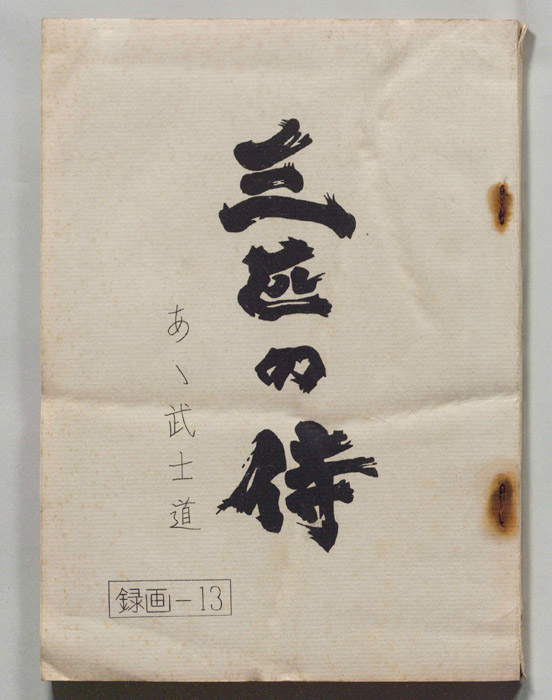 三匹の侍
あゝ武士道
録画－13